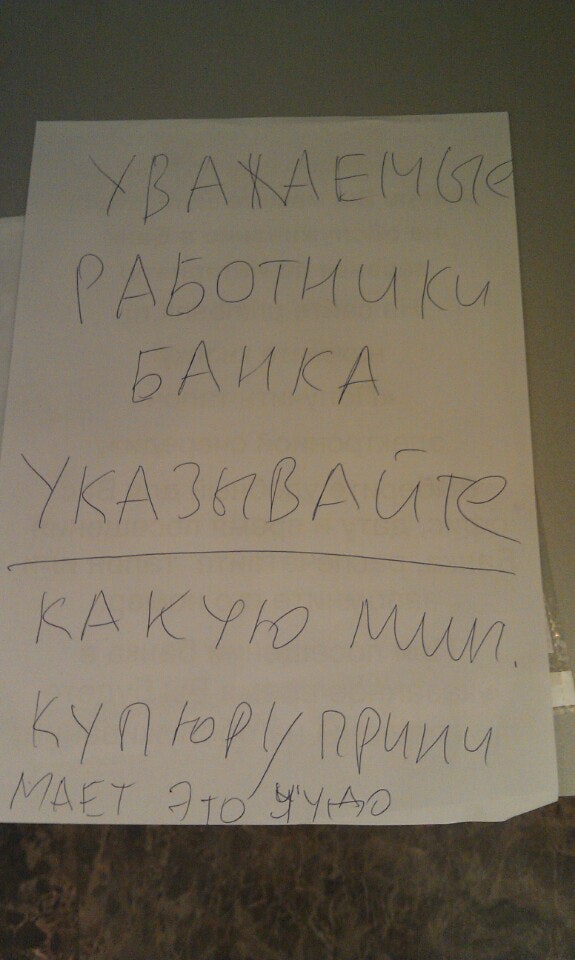 УВАЖАЕМЫЕ
РАБОТНИКИ
БАНКА
УКАЗЫВАЙТЕ
КАКУЮ МИН.
КУПЮРУ ПРИНИ
МАЕТ ЭТО ЧУДО